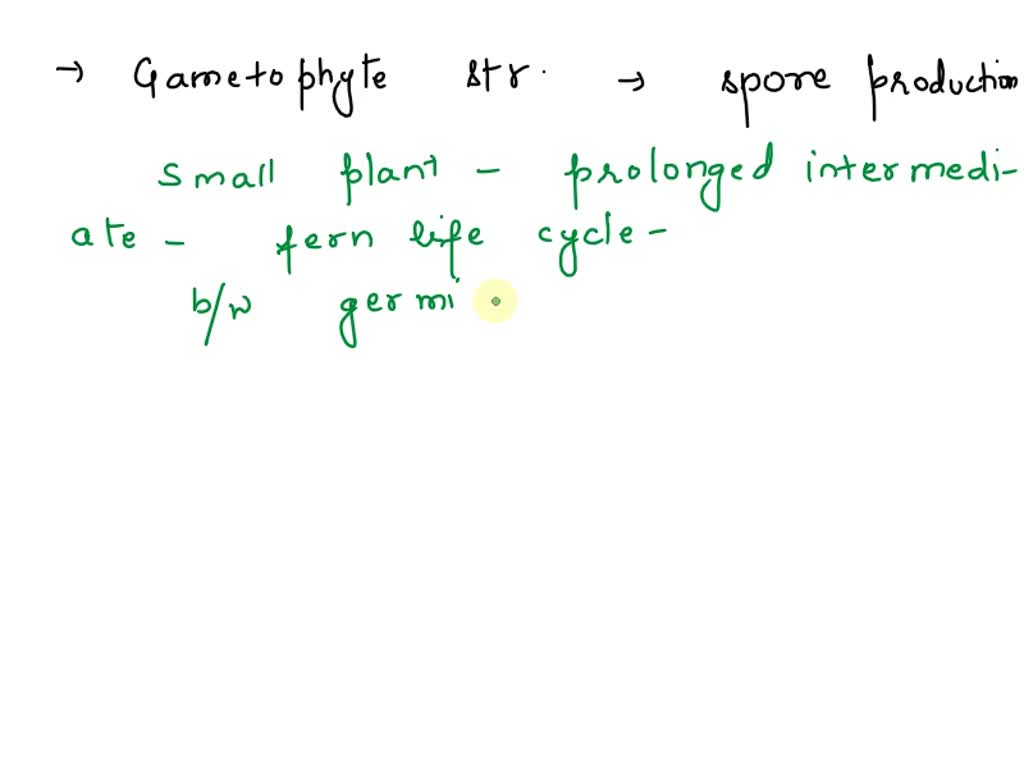 → Gametophyte str. → spore production
small plant - prolonged intermedi-
ate - fern life cycle -
b/w germi